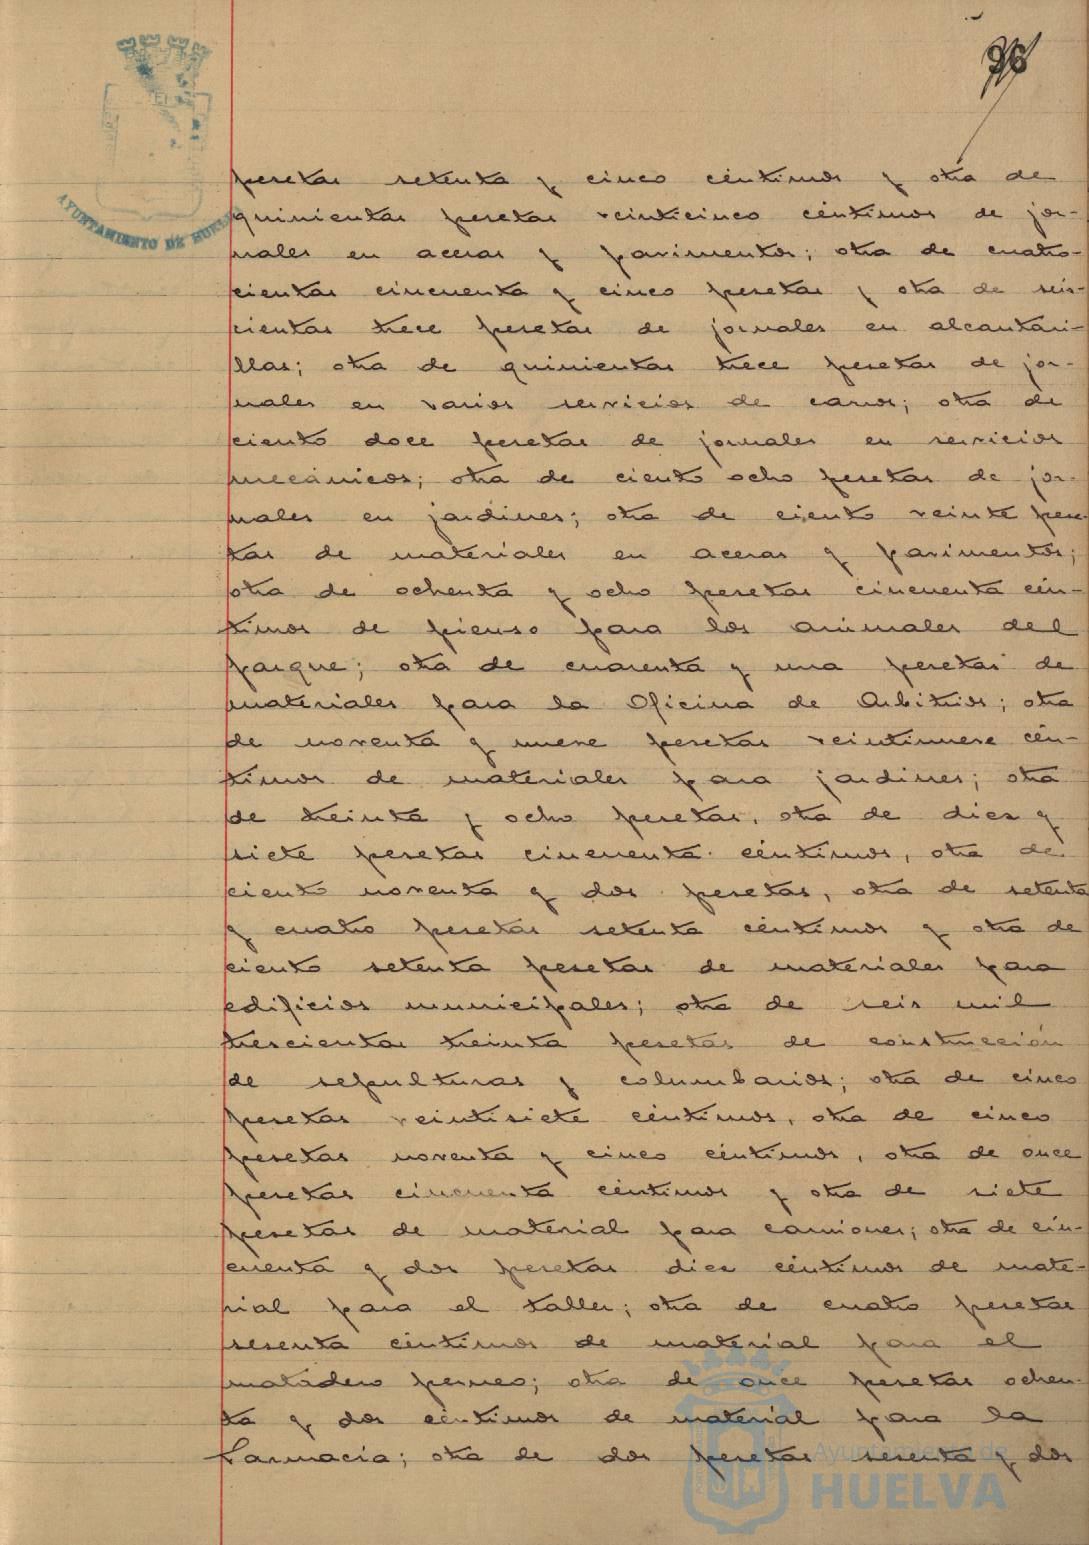 96
AYUNTAMIENTO DE HUELVA
pesetas setenta y cinco céntimos y otra de
quinientas pesetas veinticinco céntimos de jor-
nales en aceras y pavimentos; otra de cuatro-
cientas cincuenta y cinco pesetas y otra de seis-
cientas trece pesetas de jornales en alcantari-
llas; otra de quinientas trece pesetas de jor-
nales en varios servicios de carros; otra de
ciento doce pesetas de jornales en servicios
mecánicos; otra de ciento ocho pesetas de jor-
nales en jardines; otra de ciento veinte pese-
tas de materiales en aceras y pavimentos;
otra de ochenta y ocho pesetas cincuenta cén-
timos de pienso para los animales del
parque; otra de cuarenta y una pesetas de
materiales para la Oficina de Arbitrios; otra
de noventa y nueve pesetas veintinueve cén-
timos de materiales para jardines; otra
de treinta y ocho pesetas, otra de diez y
siete pesetas cincuenta céntimos, otra de
ciento noventa y dos pesetas, otra de setenta
y cuatro pesetas setenta céntimos y otra de
ciento setenta pesetas de materiales para
edificios municipales; otra de seis mil
trescientas treinta pesetas de construcción
de sepulturas y columbarios; otra de cinco
pesetas veintisiete céntimos, otra de cinco
pesetas noventa y cinco céntimos, otra de once
pesetas cincuenta céntimos y otra de siete
pesetas de material para camiones; otra de cin-
cuenta y dos pesetas diez céntimos de mate-
rial para el taller; otra de cuatro pesetas
sesenta céntimos de material para el
matadero perneo; otra de once pesetas ochen-
ta y dos céntimos de material para la
Farmacia; otra de dos pesetas sesenta y dos
Ayuntamiento de
HUELVA